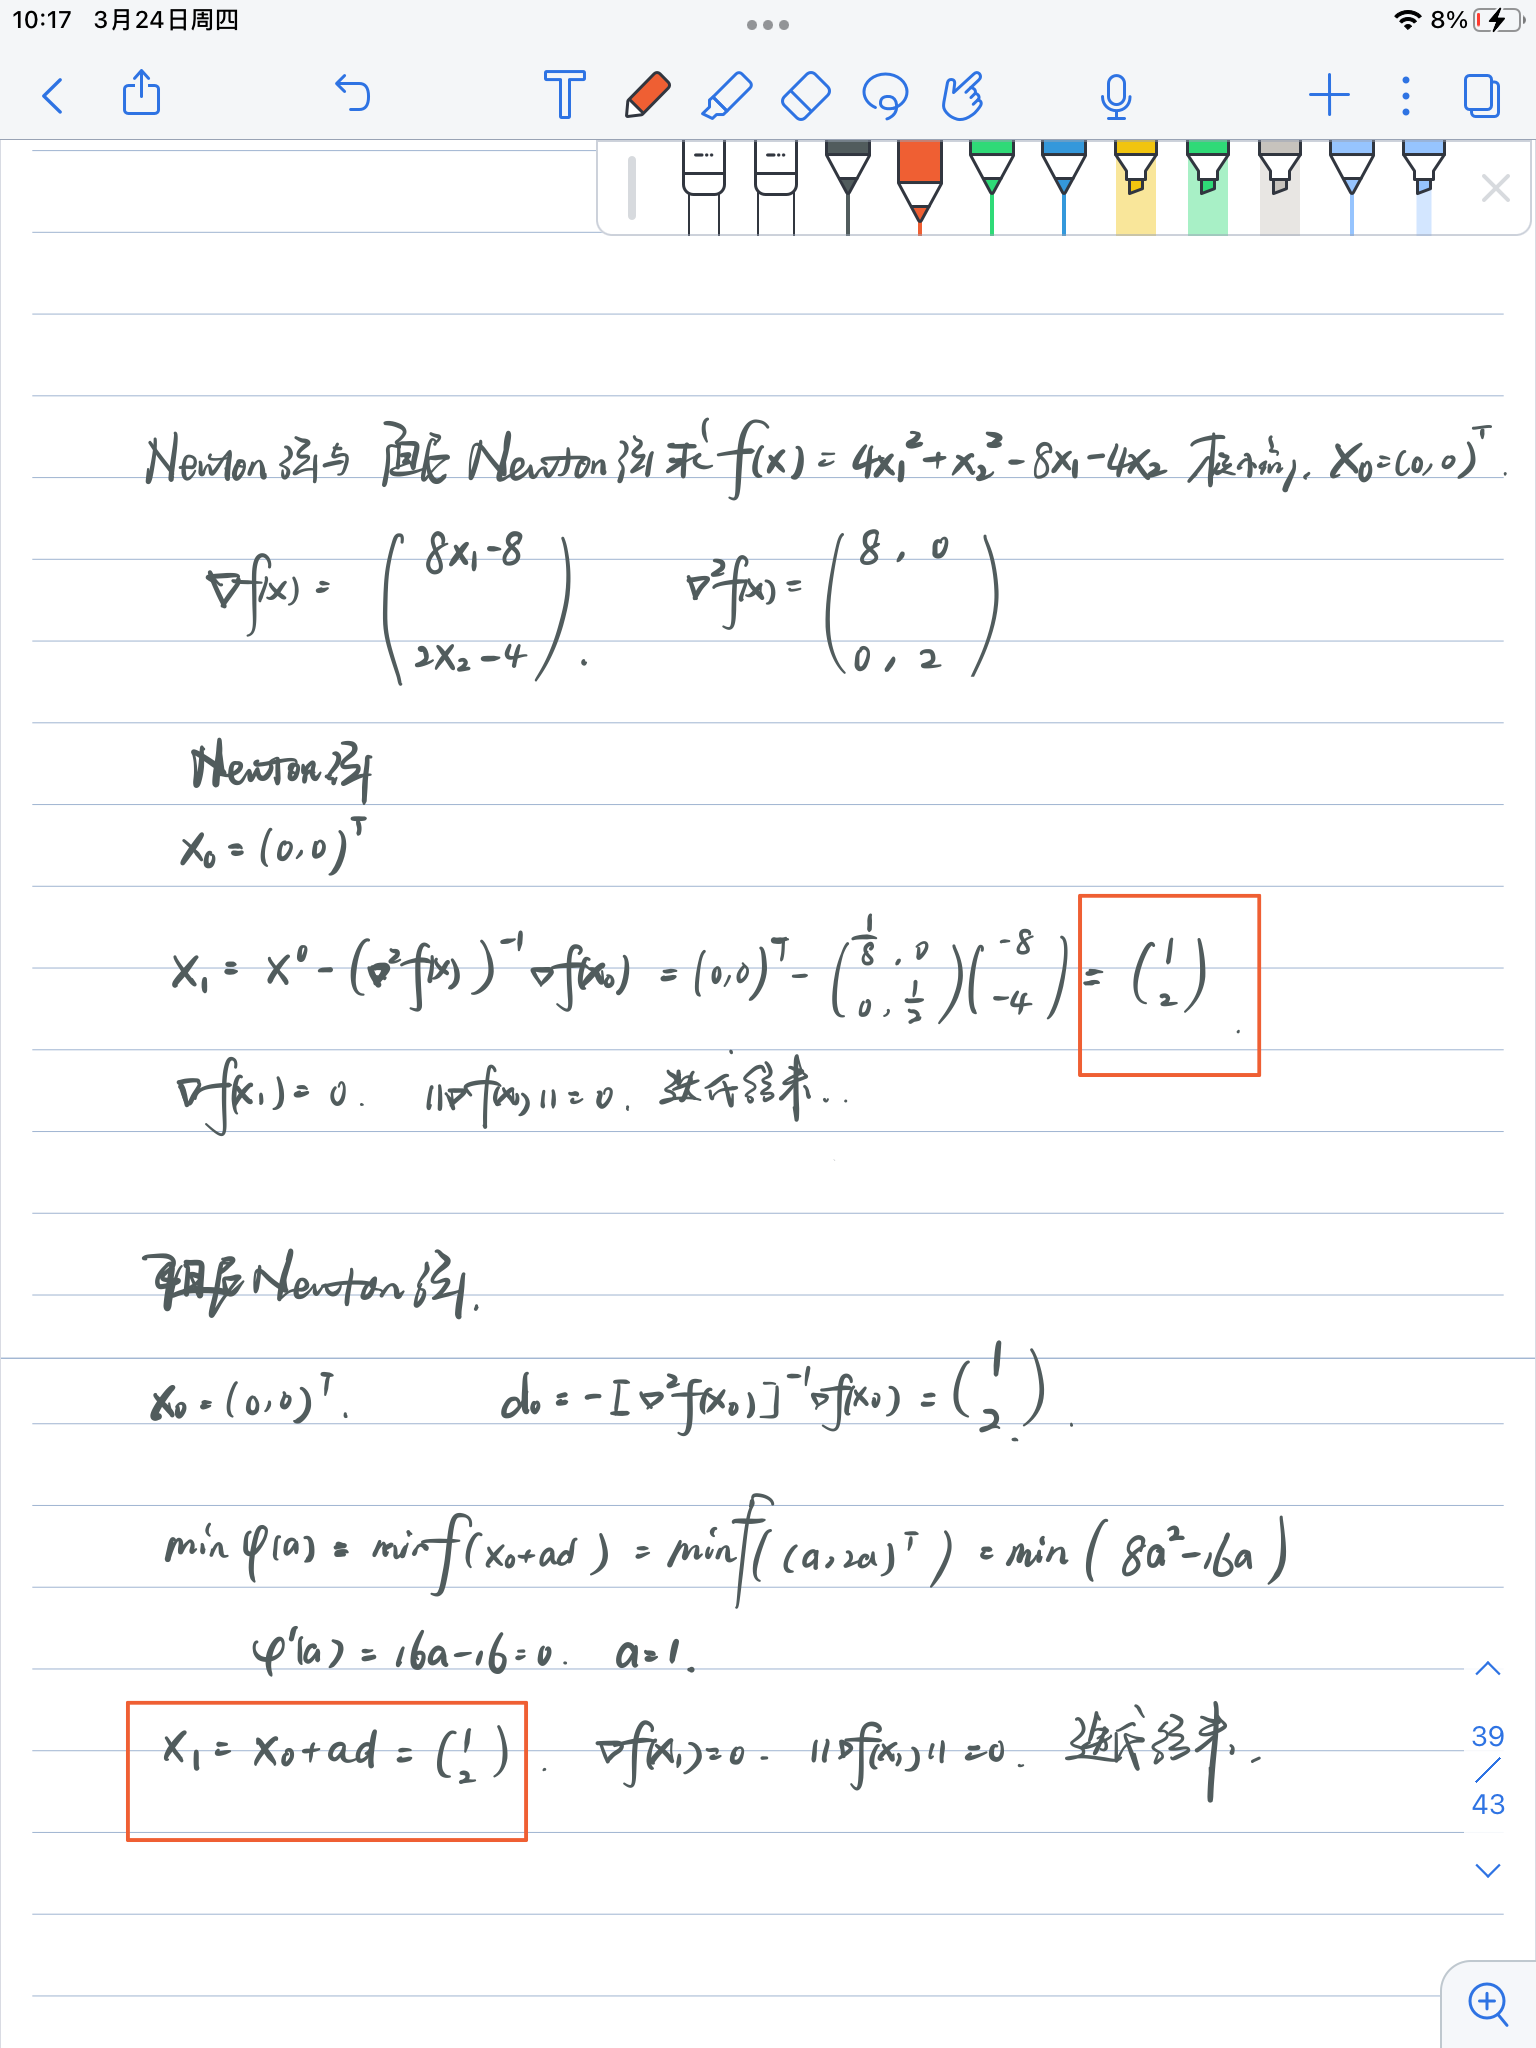 10:17 3月24日周四
8%
Newton法与阻尼Newton法求 f(x) = 4x₁² + x₂² - 8x₁ - 4x₂ 极小点, X₀=(0,0)ᵀ.
∇f(x) = ( 8x₁-8 2x₂-4 ). ∇²f(x) = ( 8, 0 0, 2 )
Newton法
X₀ = (0,0)ᵀ
X₁ = X⁰ - (∇²f(x))⁻¹ ∇f(x₀) = (0,0)ᵀ - ( 1/8, 0 0, 1/2 ) ( -8 -4 ) = ( 1 2 ).
∇f(x₁) = 0. ||∇f(x₁)|| = 0. 迭代结束..
阻尼Newton法.
X₀ = (0,0)ᵀ. d₀ = -[∇²f(x₀)]⁻¹∇f(x₀) = ( 1 2 ).
min φ(a) = min f(x₀+ad) = min f((a,2a)ᵀ) = min (8a²-16a)
φ'(a) = 16a-16=0. a=1.
X₁ = X₀+ad = ( 1 2 ). ∇f(x₁)=0. ||∇f(x₁)||=0. 迭代结束..
39
/
43